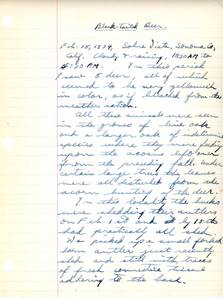 Black-tailed Deer.
Feb. 15, 1939, Sobre Vista, Sonoma Co,
Calif. Cloudy & raining, 11:30 AM to
4:30 P.M. In this period
I saw 8 deer, all of which
seemed to be very yellowish
in color, as if bleached from the
weather action.
All these animals were seen
in the groves of
and a large oak of
species where they were feeding
upon the acorns left over
from the preceding fall. Under
certain large trees the leaves
were all disturbed from the
acorn hunting of the deer.
In this locality the bucks
were shedding their antlers
on Feb. 1st and by 15th
had practically all shed.
We picked up a small forked
horn antler, just recently
shed and still with traces
of fresh connective tissue
adhering to the base.